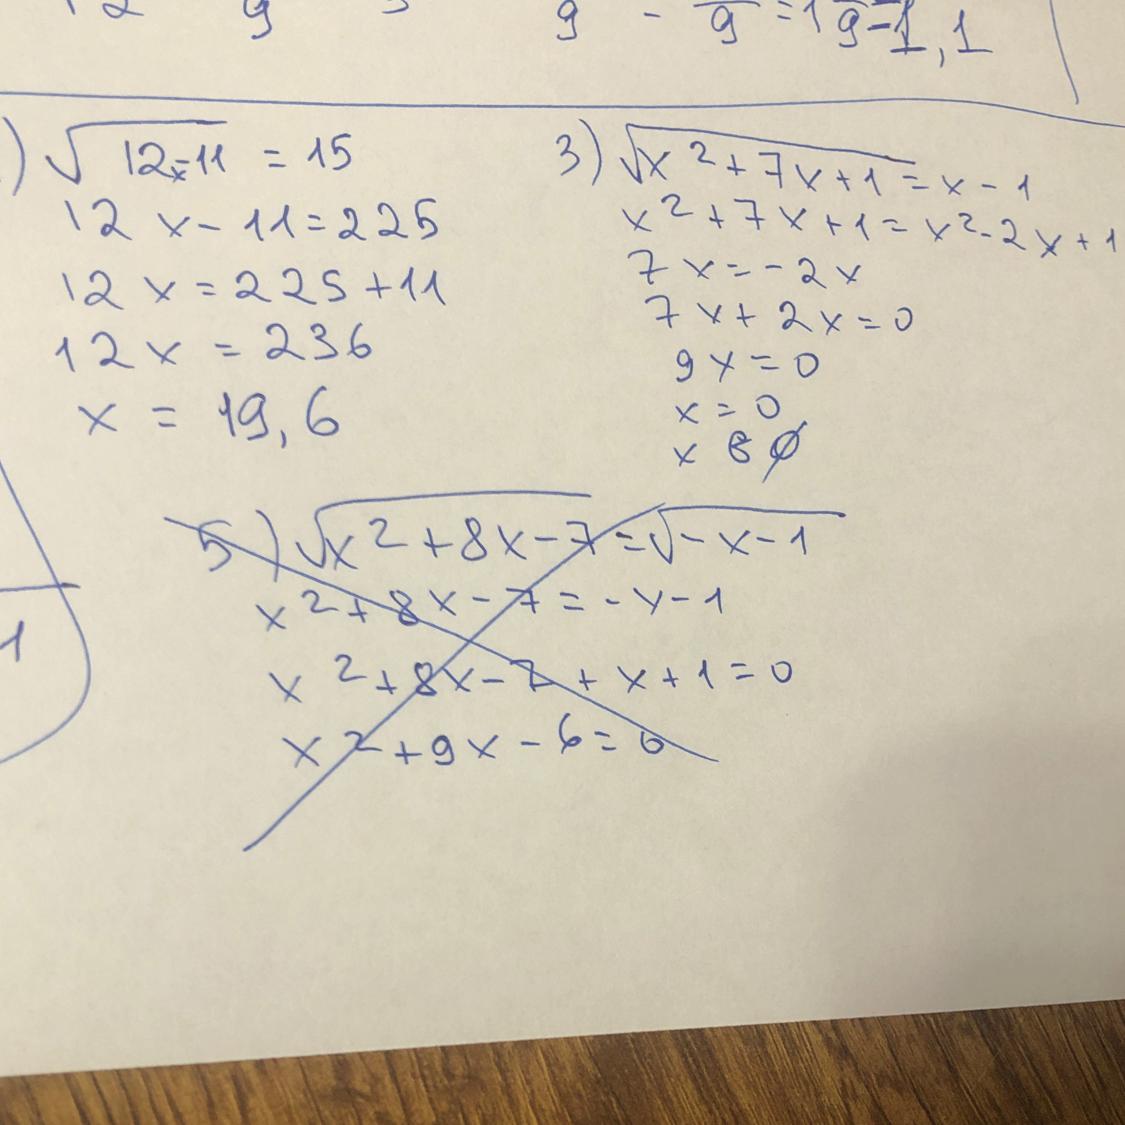 9 9 - 9 = 1 9 = 1,1
) √12x-11 = 15
12x-11=225
12x=225+11
12x=236
x = 19,6
3) √x²+7x+1 = x-1
x²+7x+1=x²-2x+1
7x=-2x
7x+2x=0
9x=0
x=0
x є ∅
5) √x²+8x-7 = √-x-1
x²+8x-7=-x-1
x²+8x-7+x+1=0
x²+9x-6=0
1